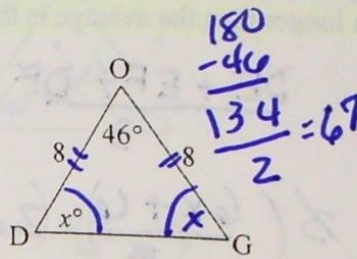 180
-46
134
2
=67
O
46°
8
8
x°
x
D
G